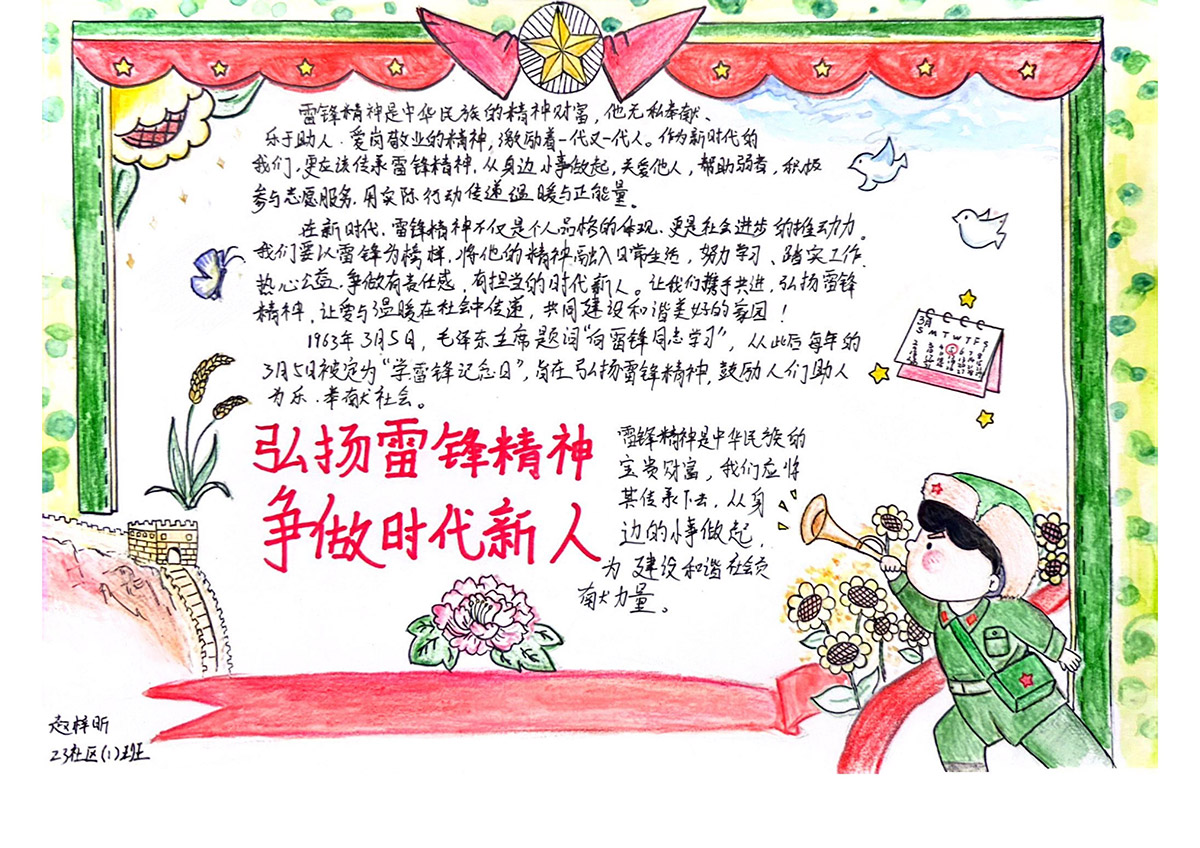 雷锋精神是中华民族的精神财富，他无私奉献、
乐于助人、爱岗敬业的精神，激励着一代又一代人。作为新时代的
我们，更应该传承雷锋精神，从身边小事做起，关爱他人，帮助弱者，积极
参与志愿服务，用实际行动传递温暖与正能量。
在新时代，雷锋精神不仅是个人品格的体现，更是社会进步的推动力。
我们要以雷锋为榜样，将他的精神融入日常生活，努力学习、踏实工作、
热心公益，争做有责任感，有担当的时代新人。让我们携手共进，弘扬雷锋
精神，让爱与温暖在社会中传递，共同建设和谐美好的家园！
1963年3月5日，毛泽东主席题词“向雷锋同志学习”，从此后每年的
3月5日被定为“学雷锋纪念日”，旨在弘扬雷锋精神，鼓励人们助人
为乐、奉献社会。
3月
S M T W T F S
弘扬雷锋精神
争做时代新人
雷锋精神是中华民族的
宝贵财富，我们应将
其传承下去，从身
边的小事做起，
为建设和谐社会贡
献力量。
赵梓昕
23社区(1)班